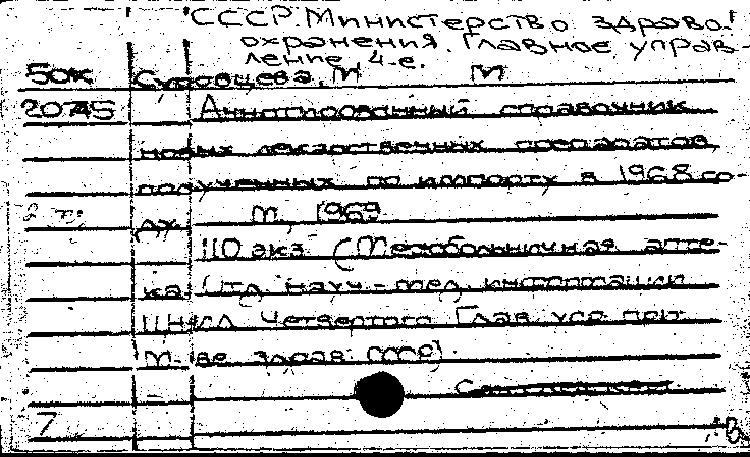 СССР. Министерство здраво-
охранения. Главное управ-
ление, 4-е.
50к Суровцева, М М
20745 Аннотированный справочник
новых лекарственных препаратов,
полученных по импорту в 1968 го-
ду. М., 1969
110 экз. (Межбольничная апте-
ка. Отд. науч.-мед. информации
ЦНИЛ Четвертого Глав. упр. при
М-ве здрав. СССР).
7